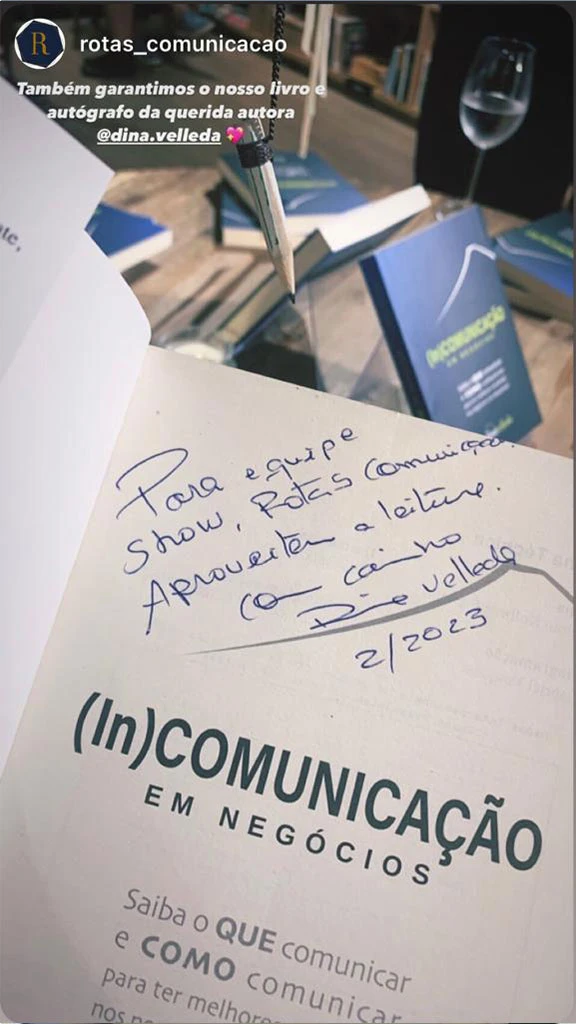 R rotas_comunicacao
Também garantimos o nosso livro e
autógrafo da querida autora
@dina.velleda
(In)COMUNICAÇÃO
EM NEGÓCIOS
Para equipe
Show, Rotas Comunicação.
Aproveitem a leitura.
com carinho
Dina Velleda
2/2023
(In)COMUNICAÇÃO
EM NEGÓCIOS
Saiba o QUE comunicar
e COMO comunicar
para ter melhore
nos